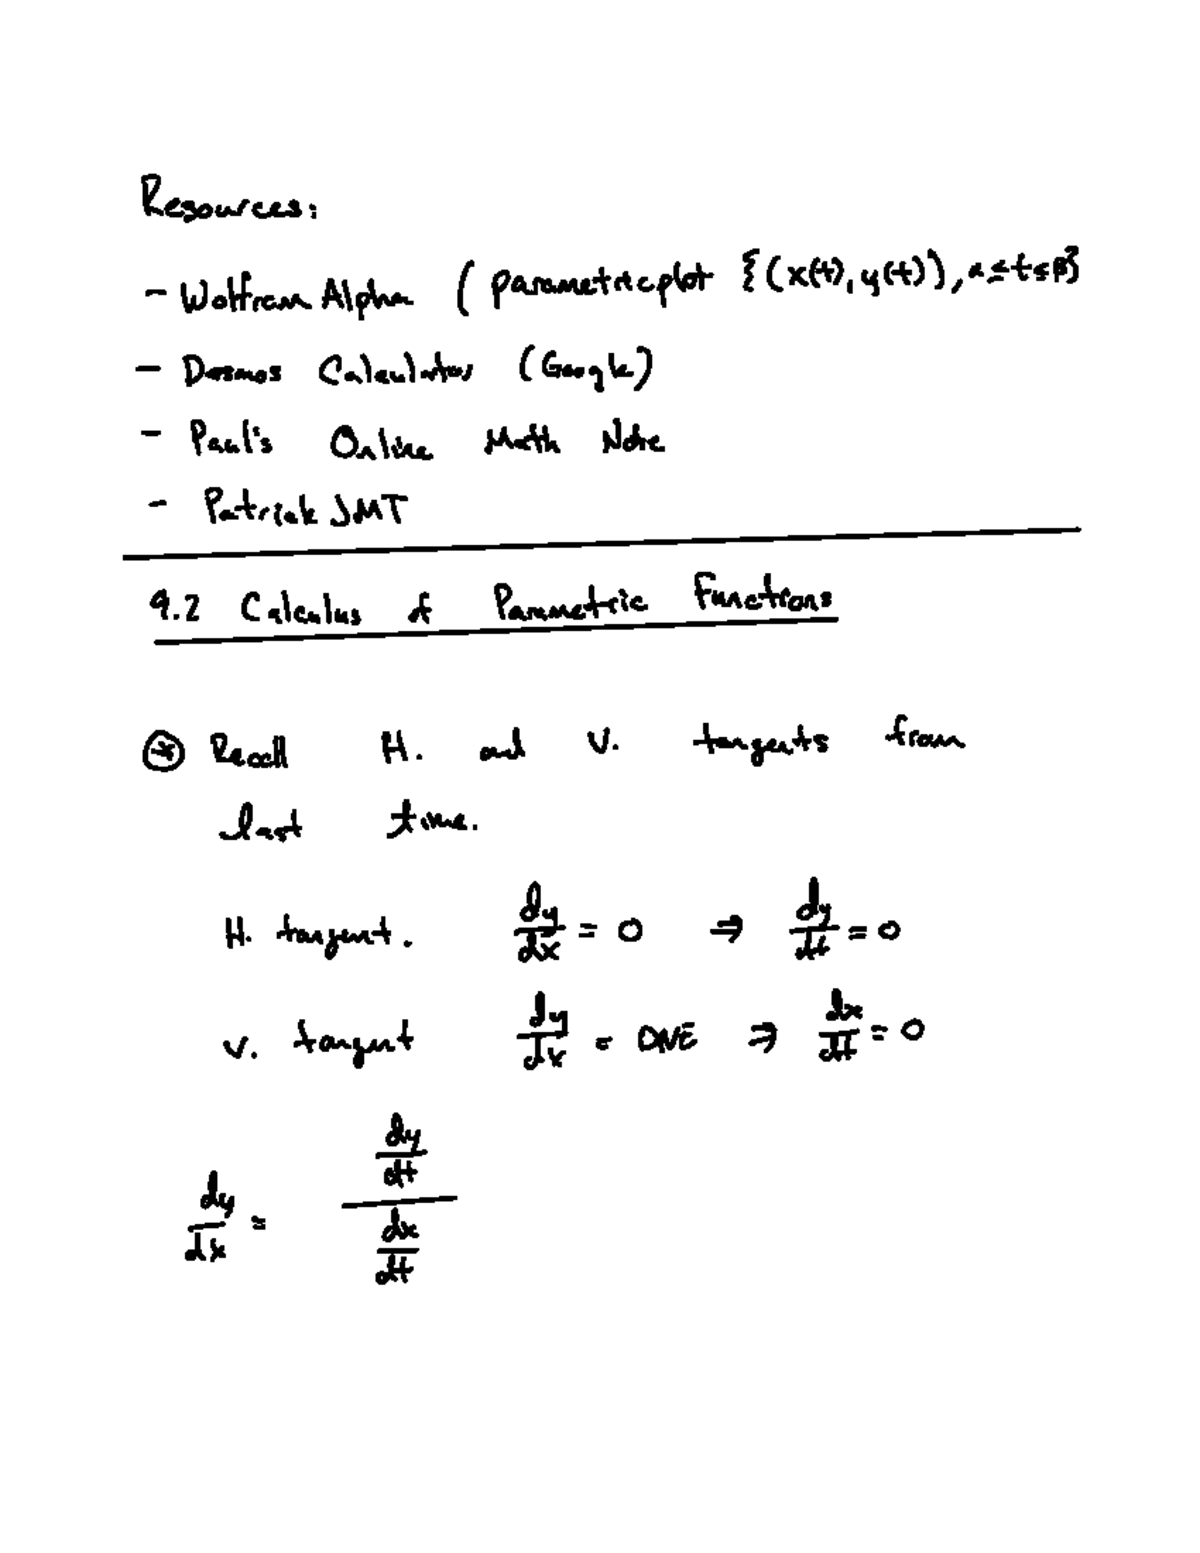 Resources:
- Wolfram Alpha ( parametricplot {(x(t), y(t)), α ≤ t ≤ β}
- Desmos Calculator (Google)
- Paul's Online Math Note
- Patrick JMT
9.2 Calculus of Parametric Functions
⊛ Recall H. and V. tangents from
last time.
H. tangent. dy/dx = 0 ⇒ dy/dt = 0
V. tangent dy/dx = DNE ⇒ dx/dt = 0
dy/dx = (dy/dt)/(dx/dt)